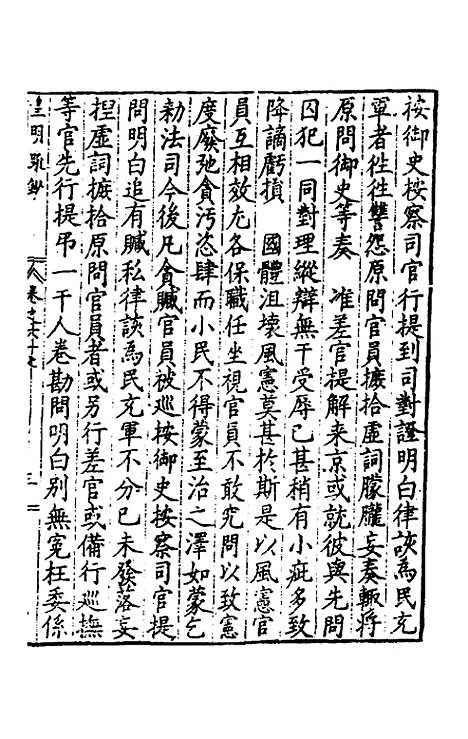 按御史按察司官行提到司對證明白律該為民充
軍者徃徃讐怨原問官員摭拾虛詞朦朧妄奏輒將
原問御史等奏　准差官提解来京或就彼與先問
囚犯一同對理縱辯無干受辱已甚稍有小疵多致
降謫虧損　國體沮壞風憲莫甚於斯是以風憲官
員互相效尤各保職任坐視官員不敢究問以致憲
度廢弛貪污恣肆而小民不得蒙至治之澤如蒙乞
勑法司今後凡貪贓官員被巡按御史按察司官提
問明白追有贓私律該為民充軍不分已未發落妄
捏虛詞摭拾原問官員者或另行差官或備行巡撫
等官先行提吊一干人卷勘問明白別無冤枉委係
皇明疏鈔
卷之六十